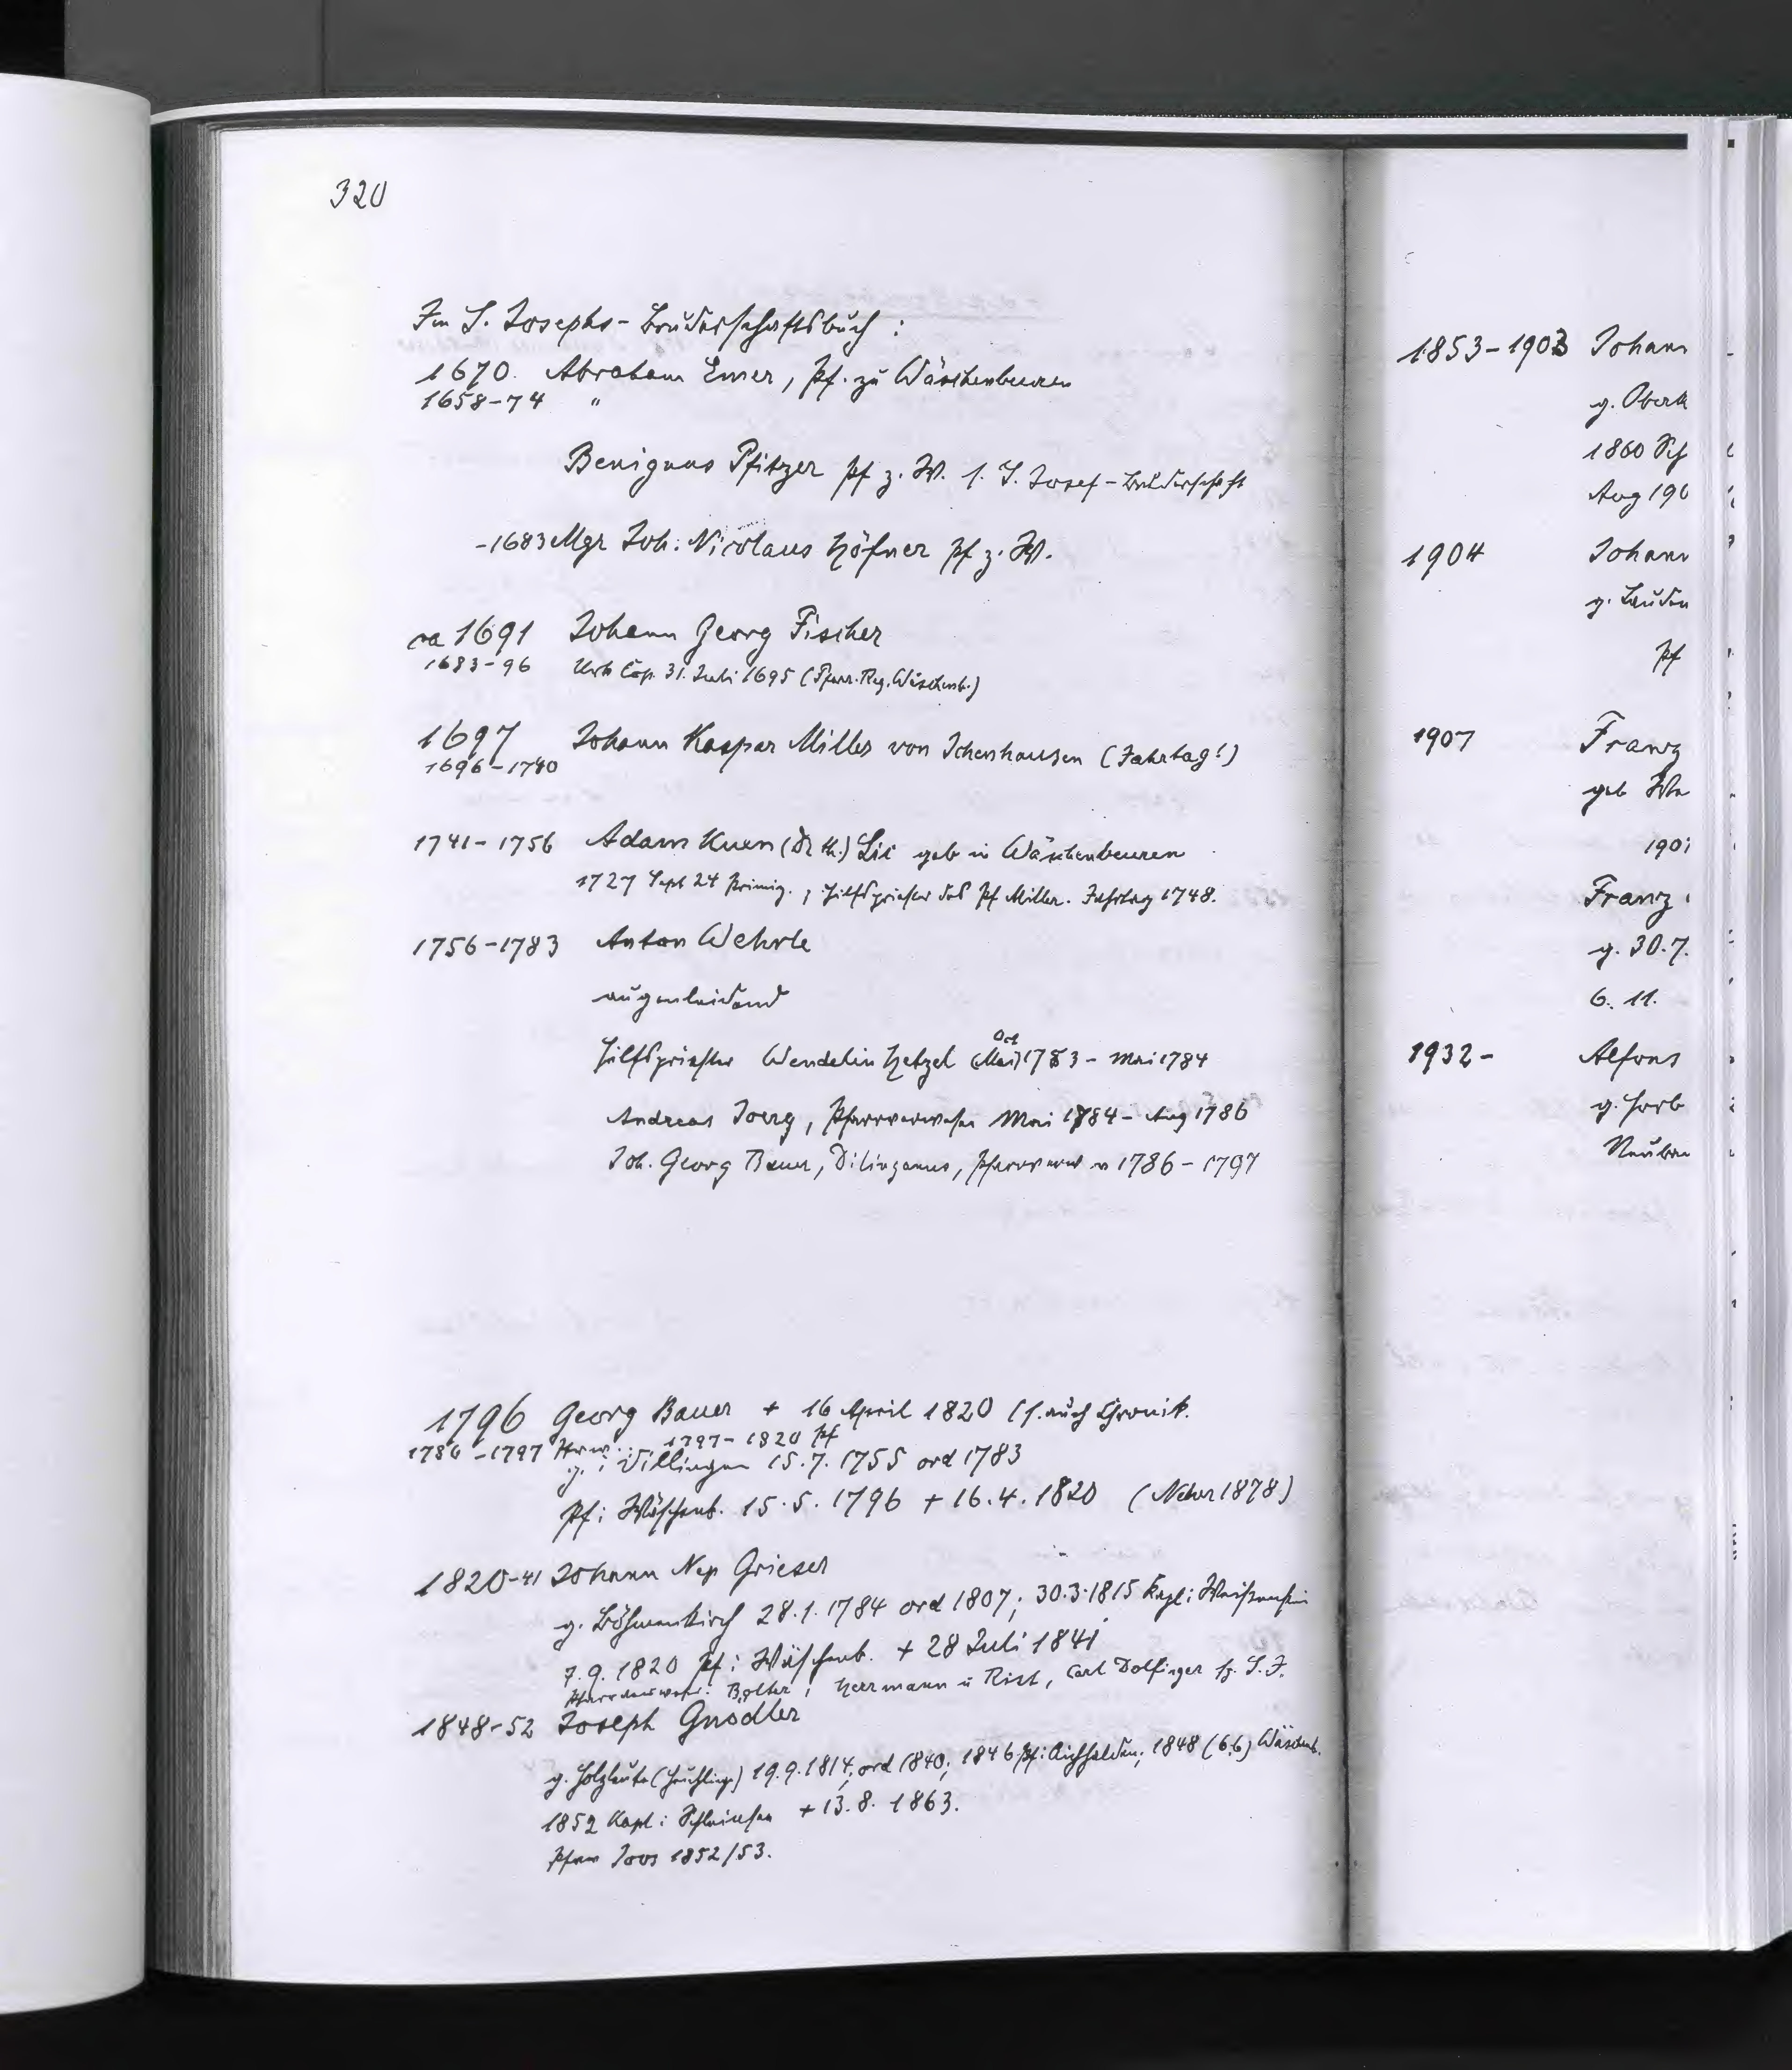 320
Im S. Josephs-Bruderschaftsbuch :
1670. Abraham Emer, Pf. zu Wäschenbeuren
1658-74 "
Benignus Pfitzer Pf z. W. s. S. Josef-Bruderschaft
-1683 Mgr Joh. Nicolaus Höfner Pf z. W.
ca 1691 Johann Georg Fischer
1683-96 Urk Cop. 31. Juli 1695 (Pfarr. Reg. Wäschenb.)
1697 Johann Kaspar Miller von Ichenhausen (Jahrtag!)
1696-1740
1741-1756 Adam Kuen (Dr th.) Lic geb in Wäschenbeuren
1727 Sept 24 Primiz., Hilfspriester des Pf Miller. Jahrtag 1748.
1756-1783 Anton Wehrle
augenleidend
Hilfspriester Wendelin Hetzel (Mai) Oct 1783 - Mai 1784
Andreas Joerg, Pfarrverweser Mai 1784 - Aug 1786
Joh. Georg Bauer, Dilinganus, Pfarrverw v 1786 - 1797
1796 Georg Bauer + 16 April 1820 (s. auch Chronik.
1786-1797 Verw. 1797-1820 Pf
g. i Villingen 15.7.1755 ord 1783
Pf i Wäschenb. 15.5.1796 + 16.4.1820 (Neher 1878)
1820-41 Johann Nep Grieser
g. Böhmenkirch 28.1.1784 ord 1807; 30.3.1815 Kapl i Weißenstein
7.9.1820 Pf i Wäschenb. + 28 Juli 1841
Pfarrverweser: Bolter, Herrmann u Rist, Carl Dolfinger Hz. S. J.
1848-52 Joseph Gnodler
g. Holzleute (Heuchlingen) 19.9.1814; ord 1840; 1846 Pf i Aichhalden; 1848 (6.6) Wäschenb.
1852 Kapl i + 13.8.1863.
Pfarrv Joos 1852/53.
1853-1903 Johann
g. Oberk
1860 Sch
Aug 190
1904 Johann
g. Lauden
Pf
1907 Franz
geb Wa
190
Franz
g. 30.7.
6. 11.
1932- Alfons
g. Horb
Neub